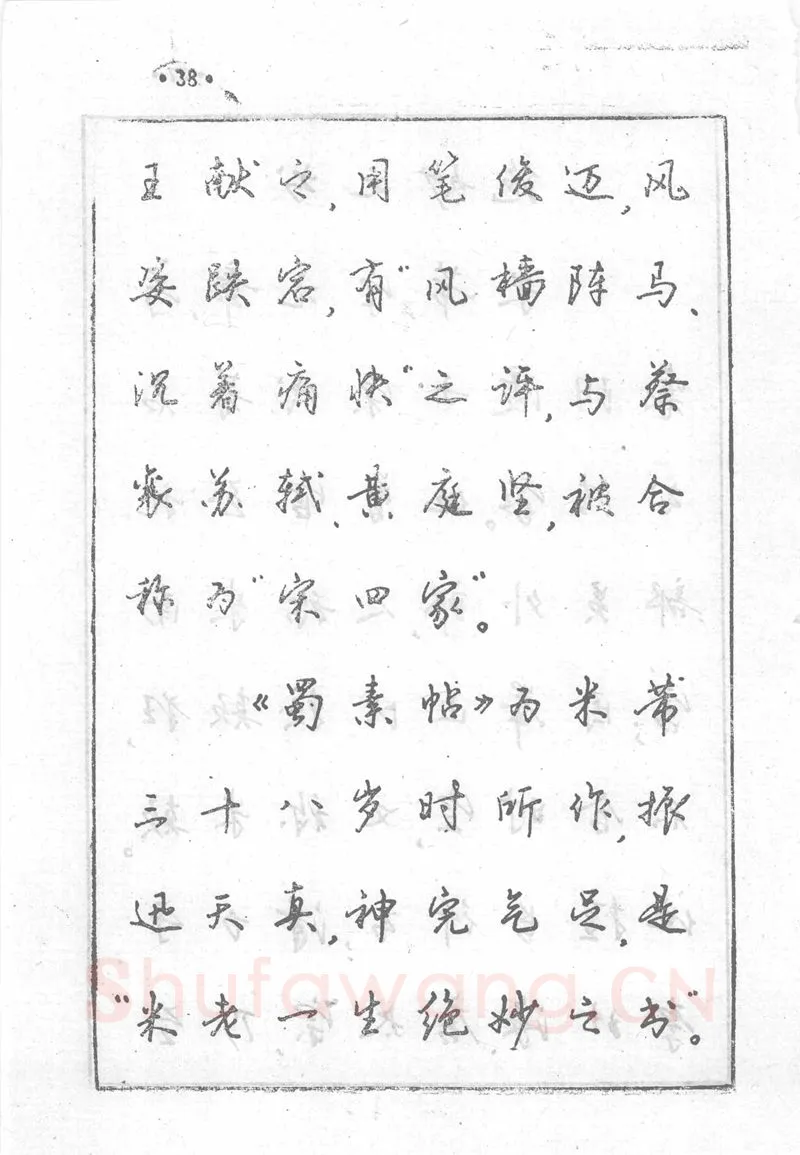 ·38·
王献之,用笔俊迈,风
姿跌宕,有“风樯阵马、
沉着痛快”之评,与蔡
襄苏轼、黄庭坚,被合
称为“宋四家”。
《蜀素帖》为米芾
三十八岁时所作,振
迅天真,神完气足,是
“米老一生绝妙之书”。
Shufawang.CN